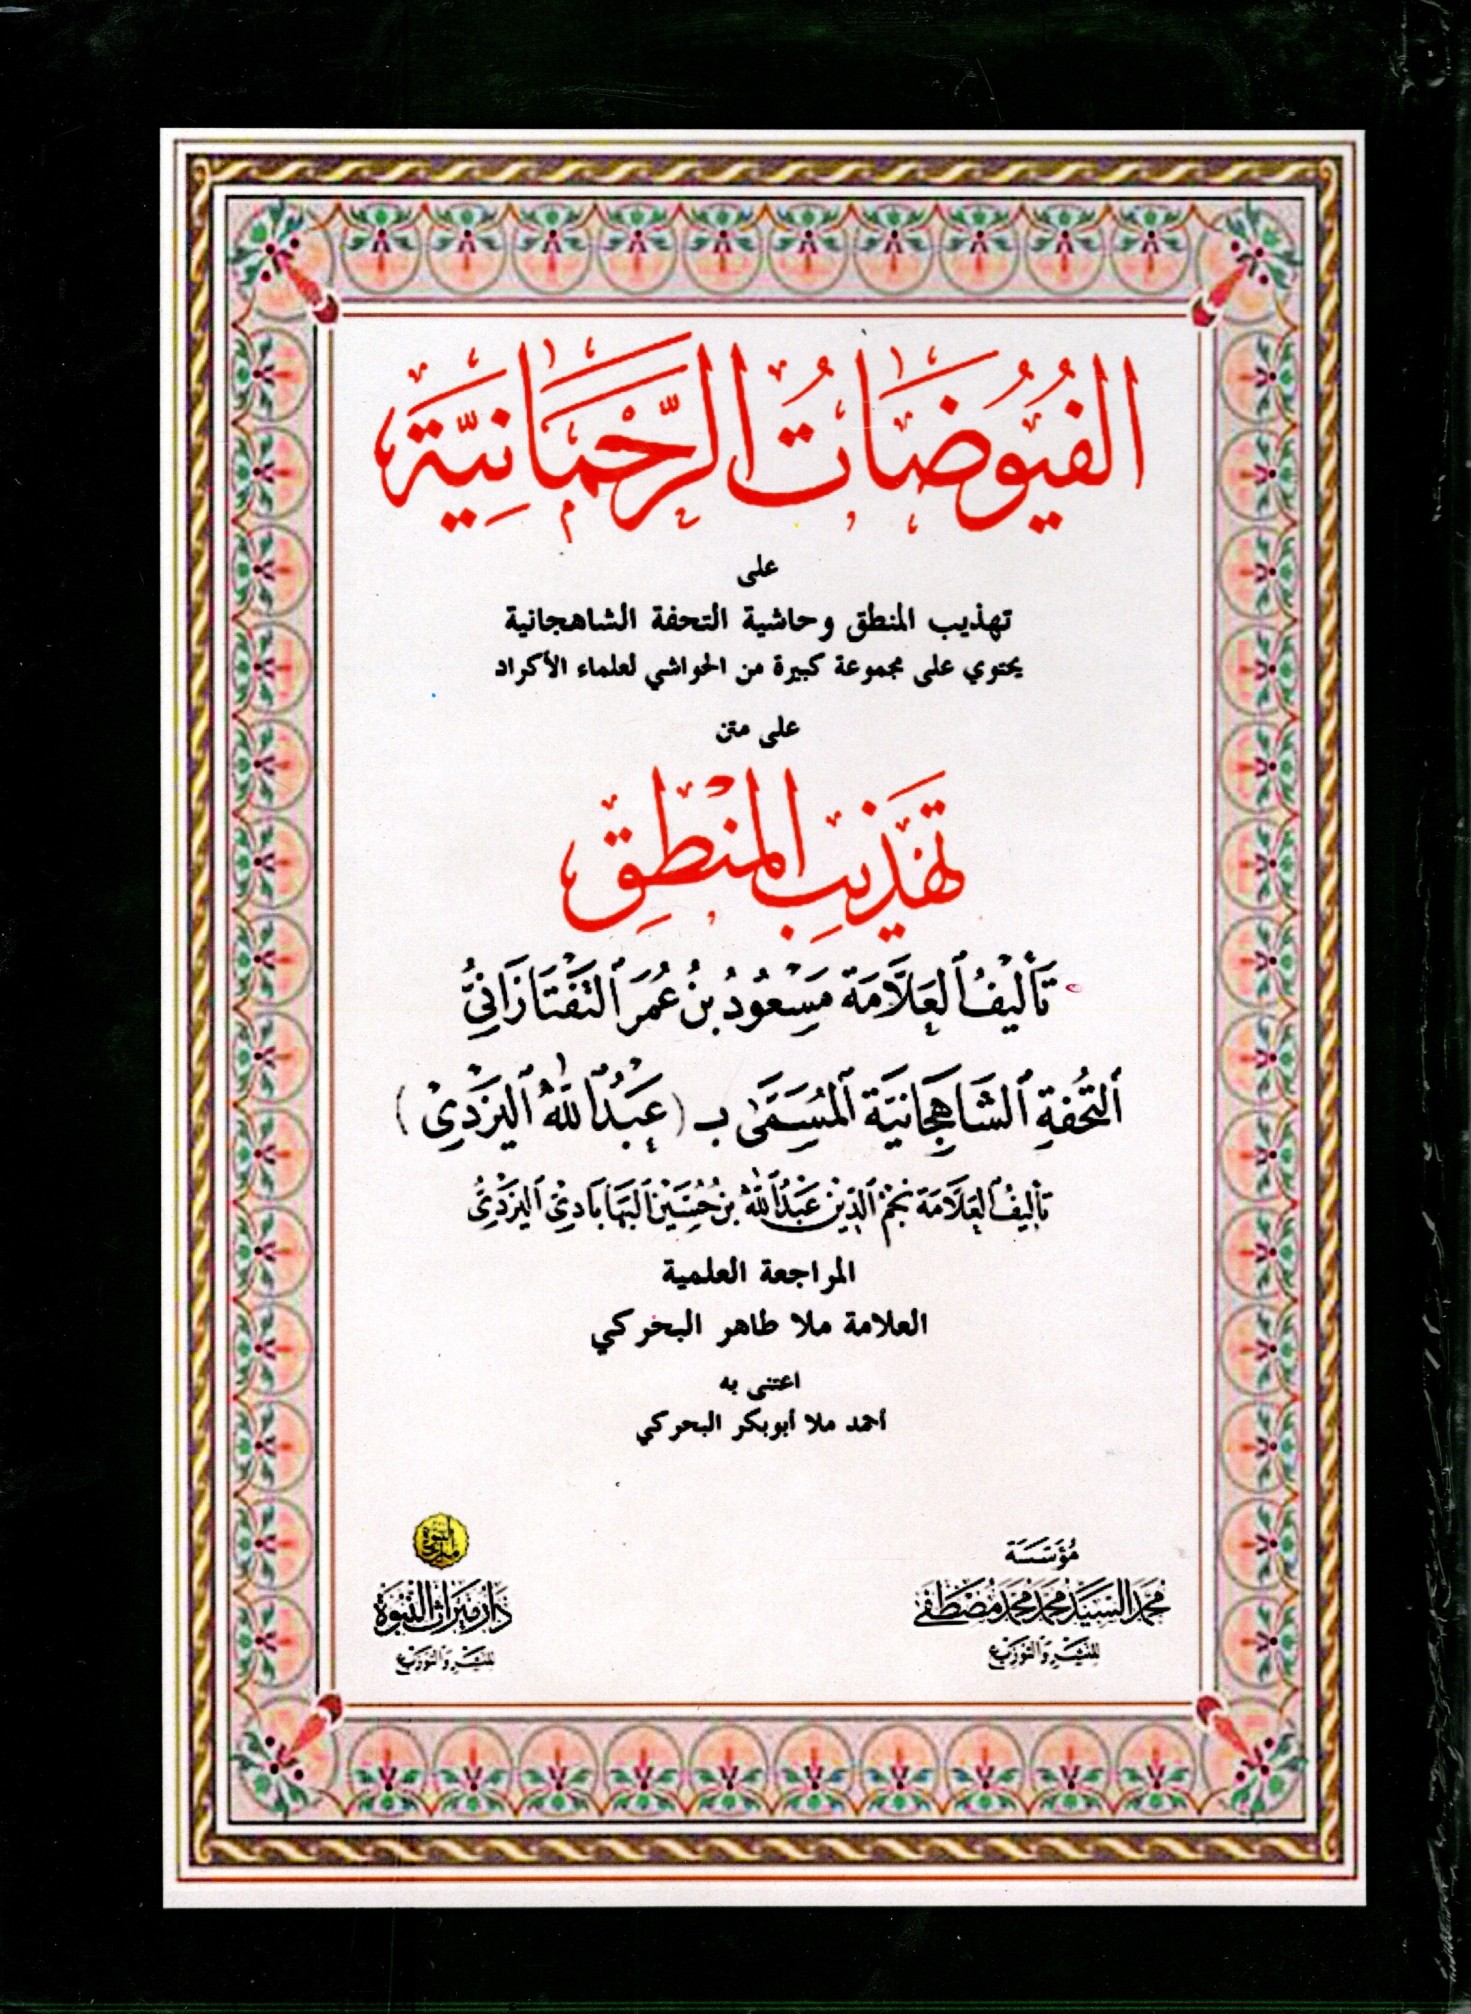 الفُيُوضَاتُ الرَّحْمَانِيَّة
على
تهذيب المنطق وحاشية التحفة الشاهجانية
يحتوي على مجموعة كبيرة من الحواشي لعلماء الأكراد
على متن
تَهْذِيبِ المَنْطِقِ
تَأْلِيفُ العَلَّامَة مَسْعُودُ بنُ عُمَرَ التَفْتَازَانِيُّ
التُحْفَةِ الشَاهِجَانِيَة المُسَمَّىٰ بـ (عَبْدُ اللّٰه اليَزْدِيْ)
تأليفُ العَلَّامَة نَجْمُ الدِّيْن عَبْدُ اللّٰه بنُ حُسَيْن البَهَابَادِيْ اليَزْدِيُّ
المراجعة العلمية
العلامة ملا طاهر البحركي
اعتنى به
أحمد ملا أبوبكر البحركي
مُؤَسَسَة
مُحَمَّد السَيِّد مُحَمَّد مُحَمَّد مُصْطَفَى
للنَشْرِ وَالتَوْزِيْع
دَارُ مِيرَاثِ النُّبُوَة
للنَشْرِ وَالتَوْزِيْع